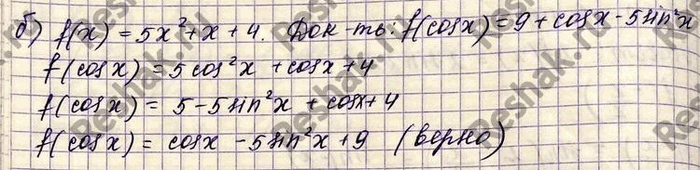 б) f(x) = 5x²+x+4. Док-ть: f(cosx) = 9 + cosx - 5sin²x
f(cosx) = 5cos²x + cosx + 4
f(cosx) = 5 - 5sin²x + cosx + 4
f(cosx) = cosx - 5sin²x + 9 (верно)
Reshak.ru